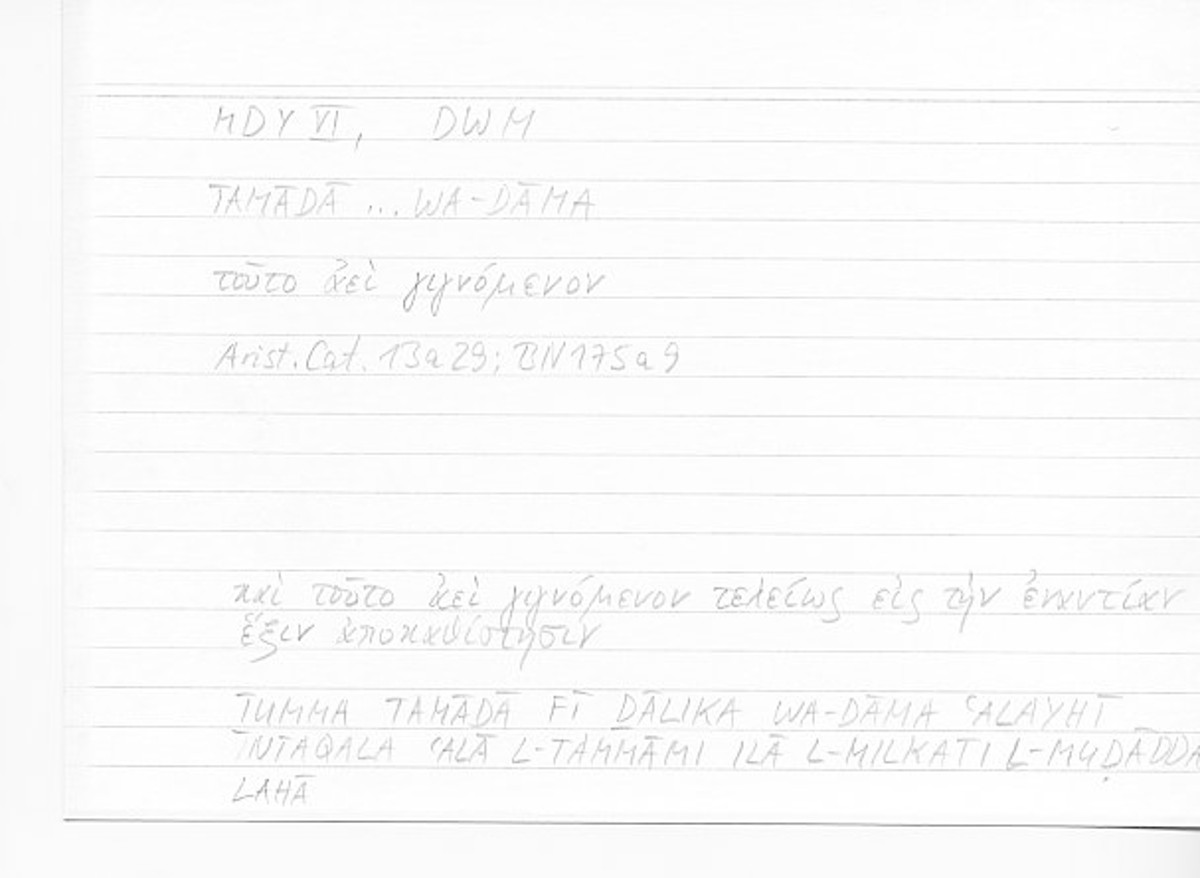 MDY VI, DWM
TAMĀDĀ ... WA-DĀMA
τοῦτο ἀεὶ γιγνόμενον
Arist. Cat. 13a29; BN175a9
καὶ τοῦτο ἀεὶ γιγνόμενον τελείως εἰς τὴν ἐναντίαν
ἕξιν ἀποκαθίστησιν
ṮUMMA TAMĀDĀ FĪ ḎĀLIKA WA-DĀMA ʿALAYHĪ
INTAQALA ʿALĀ L-TAMMĀMI ILĀ L-MILKATI L-MUḌĀDDA
LAHĀ